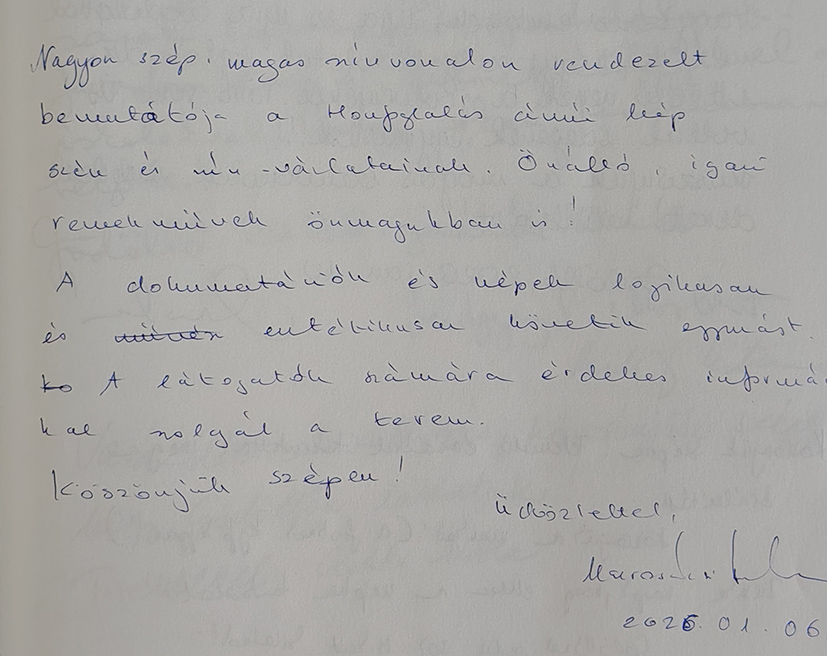 Nagyon szép, magas nívvonalon rendezett
bemutatója a Honfoglalás című kép
szén és szín-vázlatainak. Önálló, igazi
remekművek önmagukban is!
A dokumentációk és képek logikusan
és esztétikusan követik egymást.
A látogatók számára érdekes informá
kal szolgál a terem.
Köszönjük szépen!
Üdözlettel,
01.06